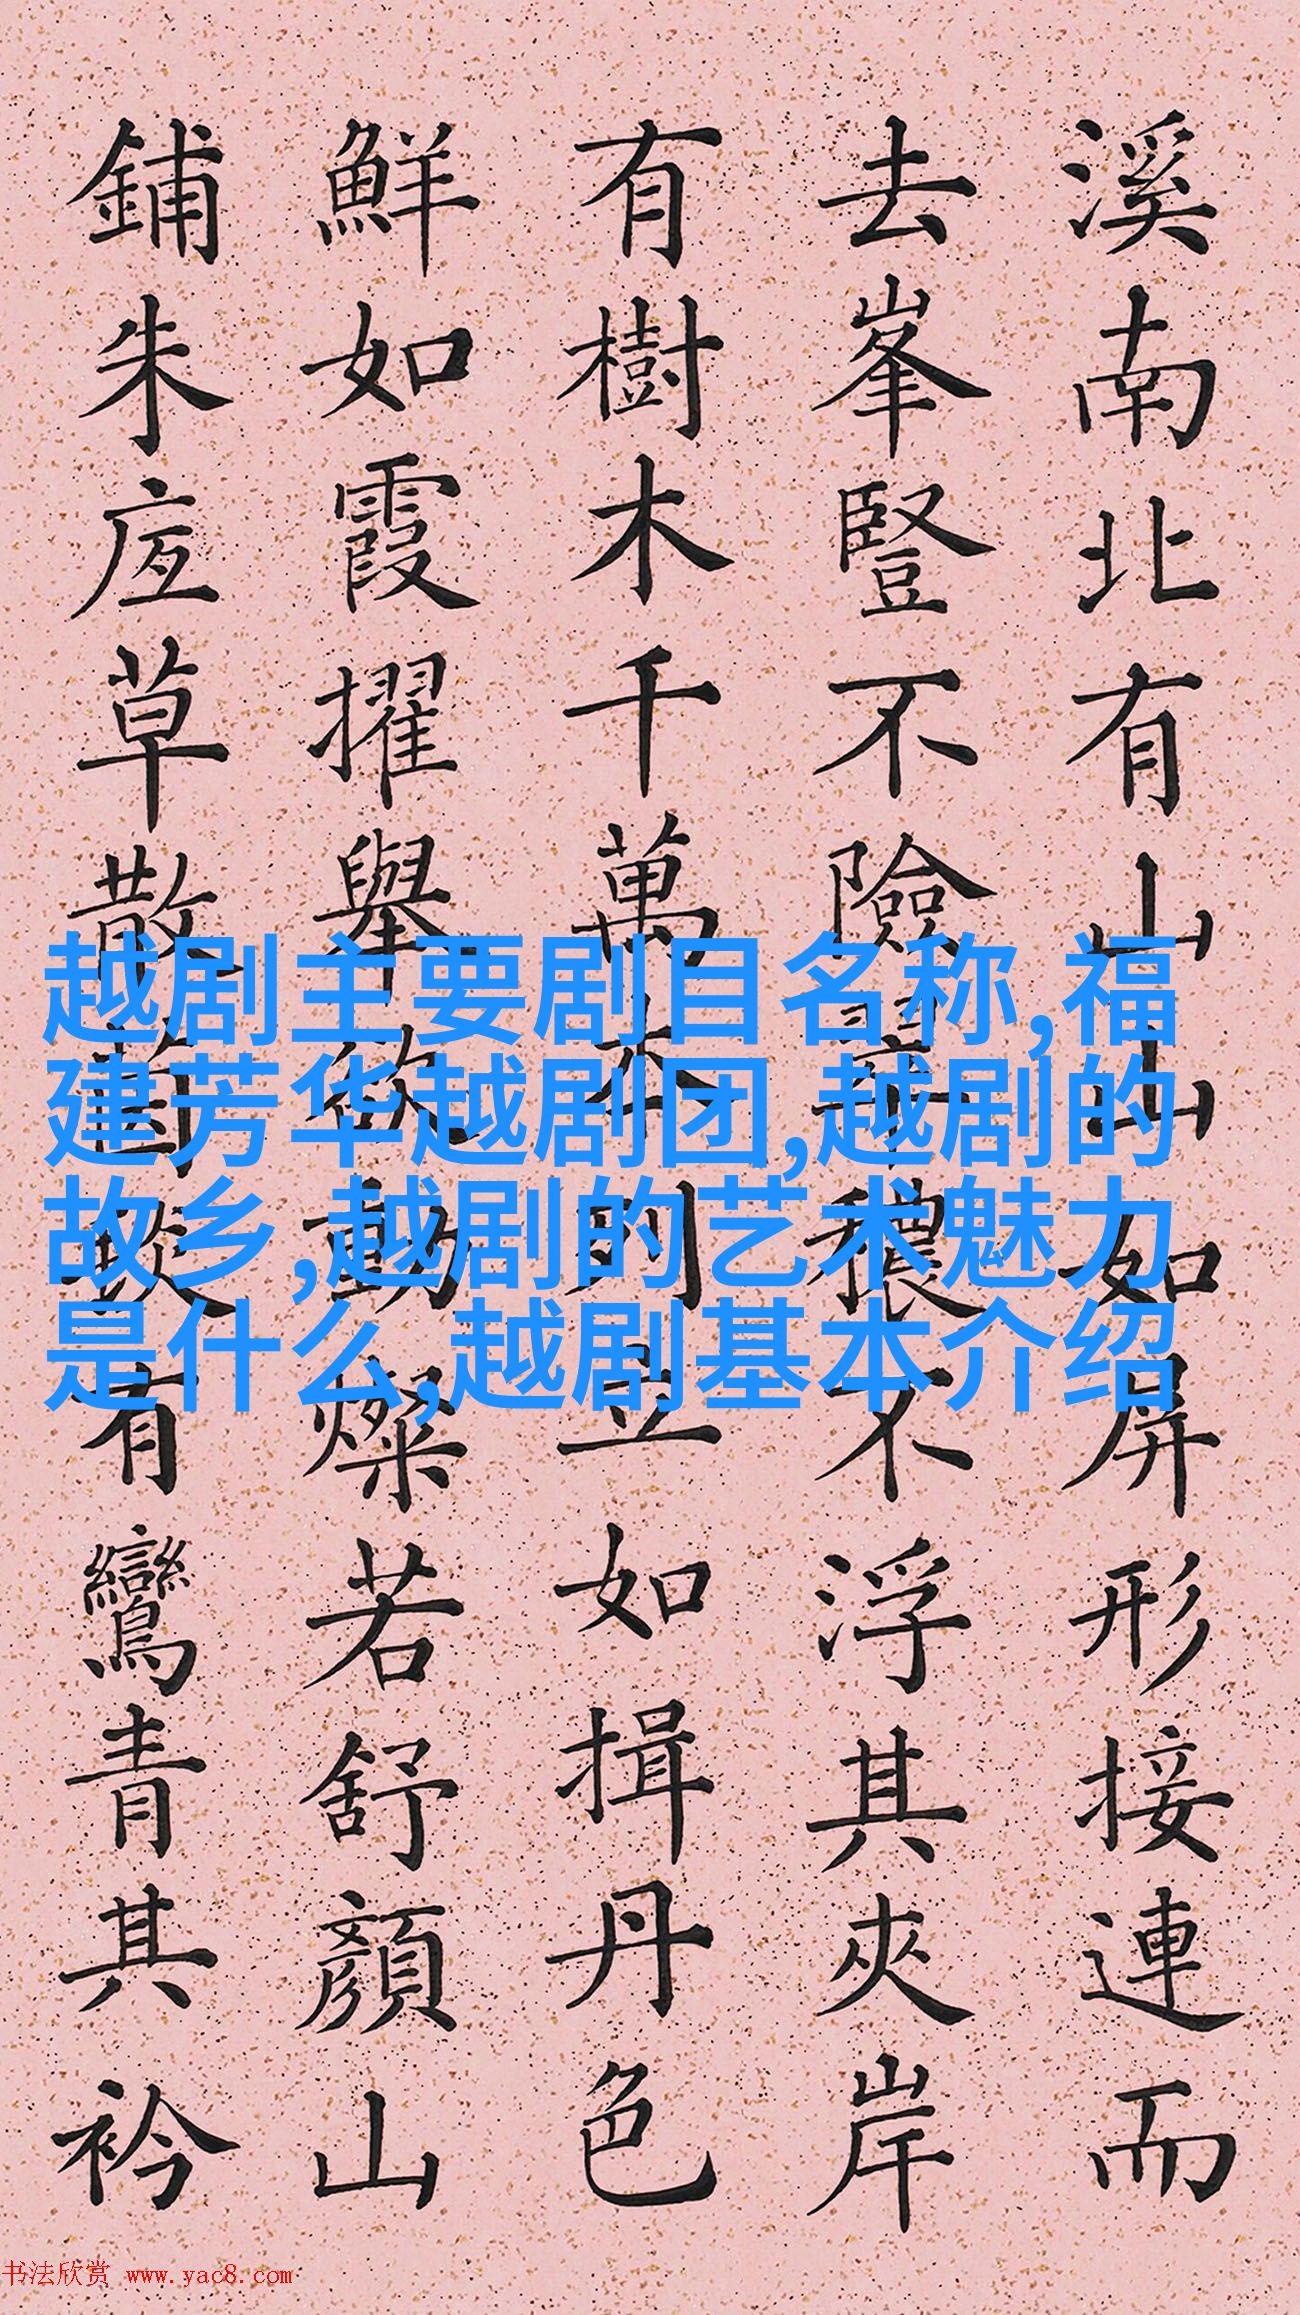 溪南北有山山如屏形接連而
去峯豎不險翠穠不浮其夾岸
有樹木千萬本列立如揖丹色
鮮如霞擢舉欲動燦若舒顏山
鋪朱底草散有鸞青其衿
越剧主要剧目名称,福
建芳华越剧团,越剧的
故乡,越剧的艺术魅力
是什么,越剧基本介绍
书法欣赏 www.yac8.com